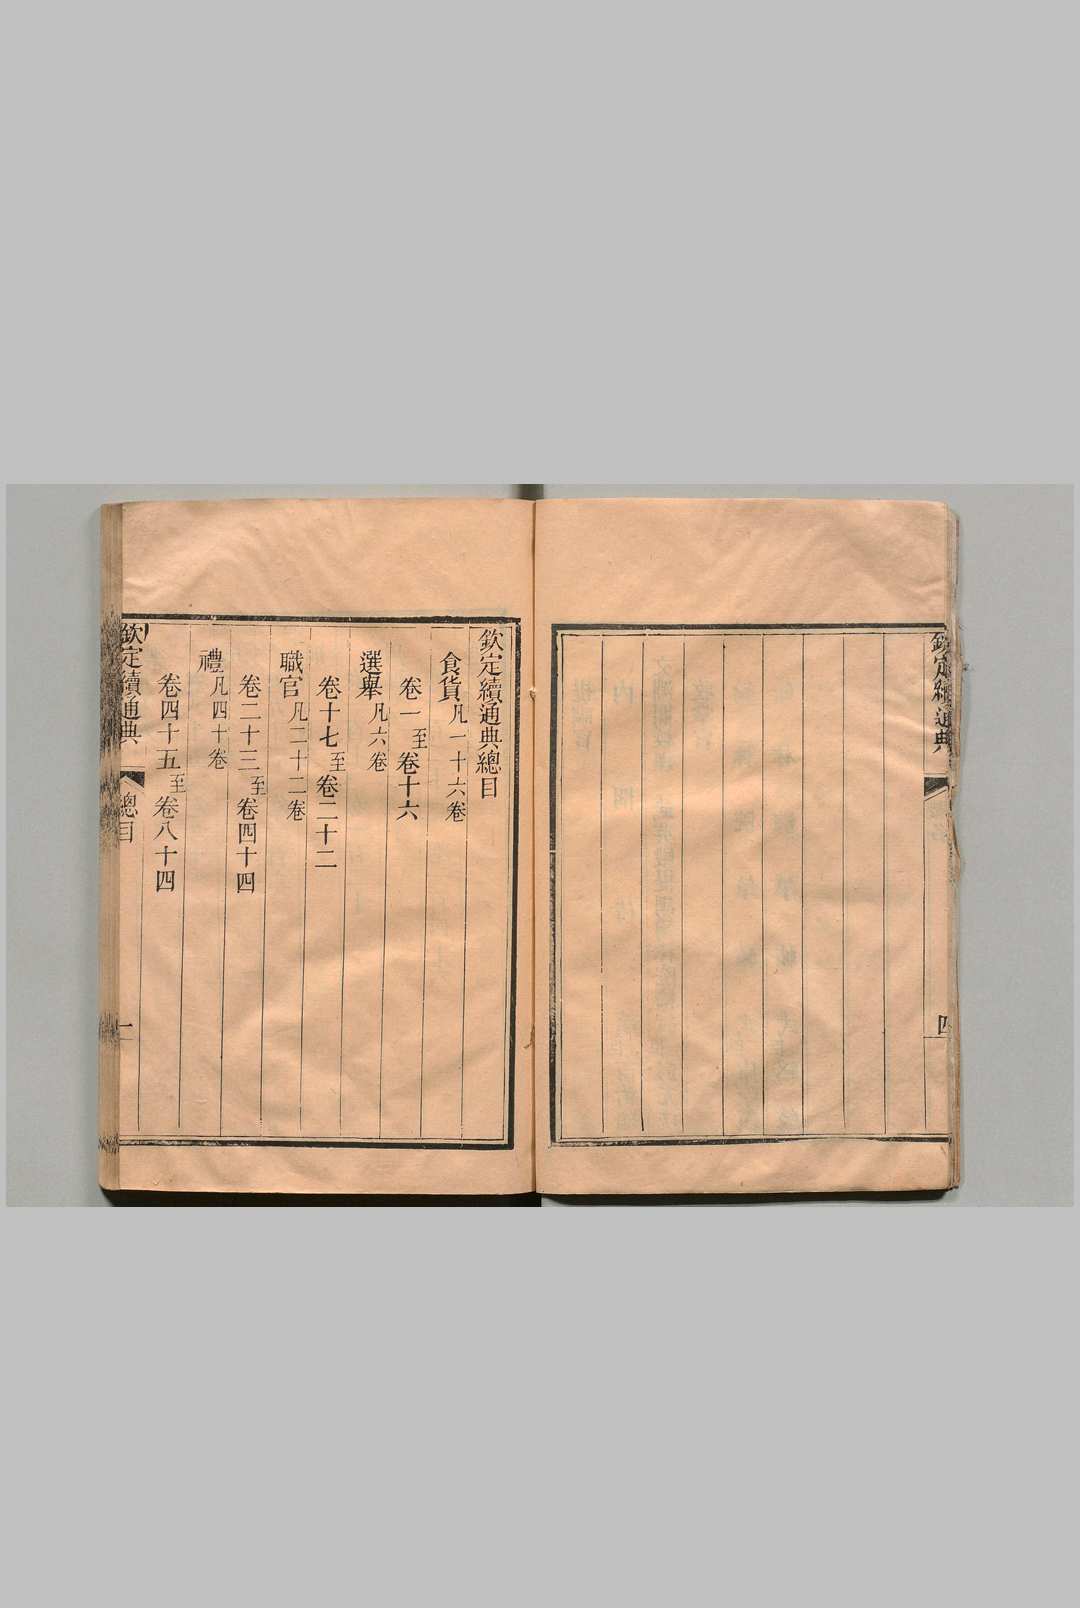 欽定續通典
四
欽定續通典總目
食貨凡一十六卷
卷一至卷十六
選舉凡六卷
卷十七至卷二十二
職官凡二十二卷
卷二十三至卷四十四
禮凡四十卷
卷四十五至卷八十四
欽定續通典
總目
一